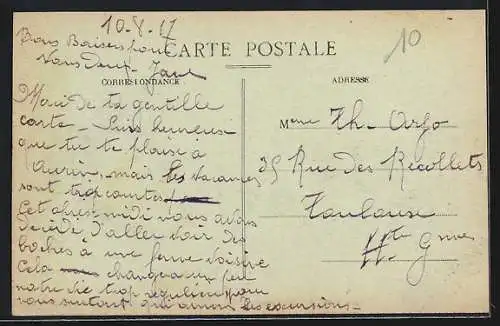 10-8-17
Bons Baisers pour
vous deux - Jane
10
CARTE POSTALE
CORRESPONDANCE
ADRESSE
Merci de ta gentille
carte - Suis heureuse
que tu te plaise à
Aurin, mais les vacances
sont trop courtes
Cet après-midi nous avons
décidé d'aller voir des
boches à une ferme voisine
Cela changera un peu
notre vie trop régulière pour
nous surtout qui aimons les excursions -
Mme Th- Arfo
35 Rue des Récollets
Toulouse
Hte Gnne